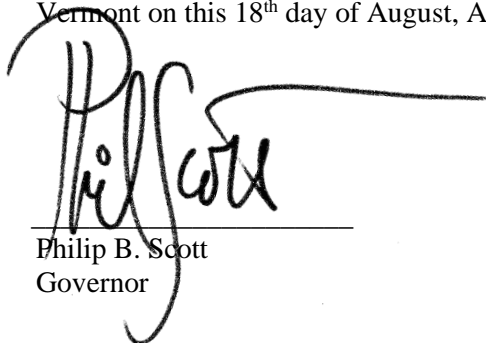 Vermont on this 18th day of August, A
Phil Scott
Philip B. Scott
Governor